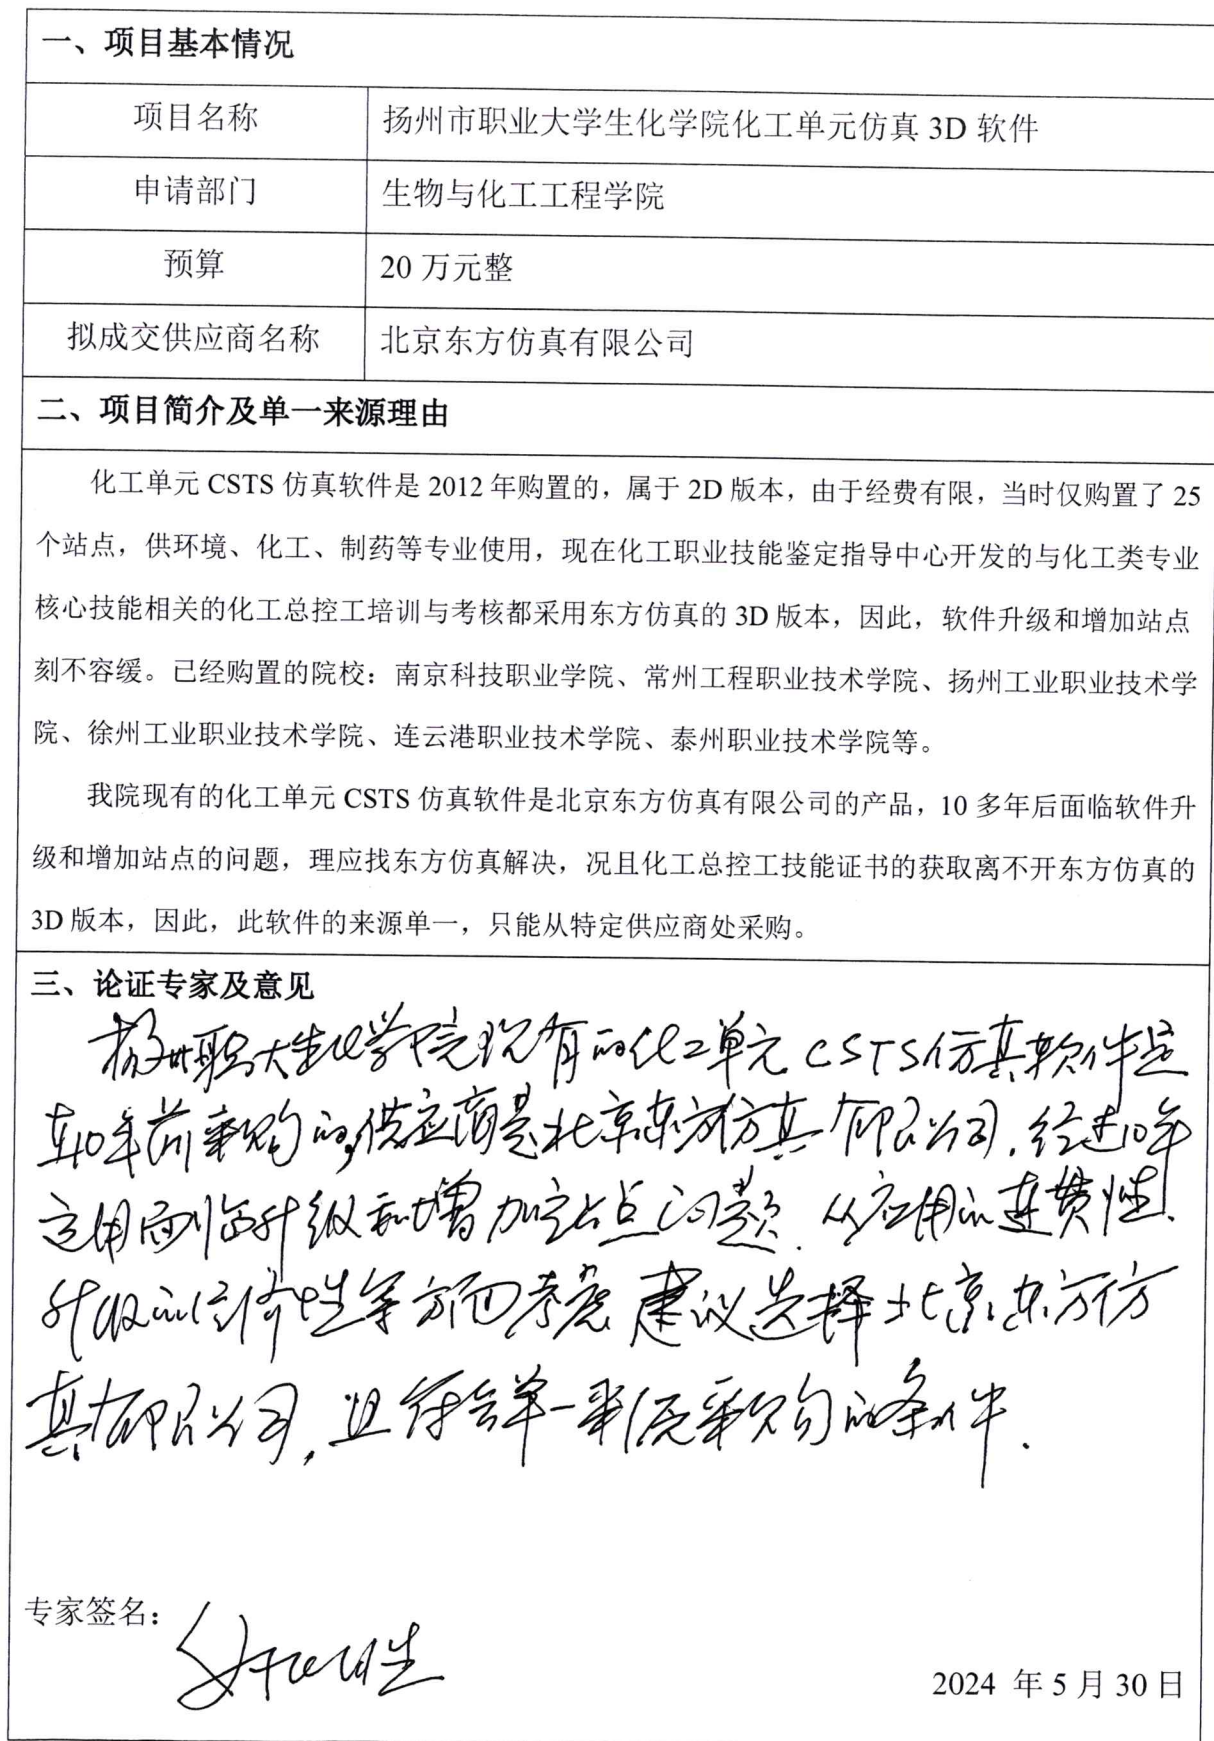 一、项目基本情况
项目名称
扬州市职业大学生化学院化工单元仿真 3D 软件
申请部门
生物与化工工程学院
预算
20 万元整
拟成交供应商名称
北京东方仿真有限公司
二、项目简介及单一来源理由
化工单元 CSTS 仿真软件是 2012 年购置的，属于 2D 版本，由于经费有限，当时仅购置了 25
个站点，供环境、化工、制药等专业使用，现在化工职业技能鉴定指导中心开发的与化工类专业
核心技能相关的化工总控工培训与考核都采用东方仿真的 3D 版本，因此，软件升级和增加站点
刻不容缓。已经购置的院校：南京科技职业学院、常州工程职业技术学院、扬州工业职业技术学
院、徐州工业职业技术学院、连云港职业技术学院、泰州职业技术学院等。
我院现有的化工单元 CSTS 仿真软件是北京东方仿真有限公司的产品，10 多年后面临软件升
级和增加站点的问题，理应找东方仿真解决，况且化工总控工技能证书的获取离不开东方仿真的
3D 版本，因此，此软件的来源单一，只能从特定供应商处采购。
三、论证专家及意见
扬州职大生化学院现有的化工单元 CSTS 仿真软件是
在10年前采购的,供应商是北京东方仿真有限公司.经过10年
运用面临升级和增加站点问题.从应用的连贯性.
升级的性等方面考虑 建议选择北京东方仿
真有限公司,且符合单一来源采购的条件.
专家签名：
2024 年 5 月 30 日